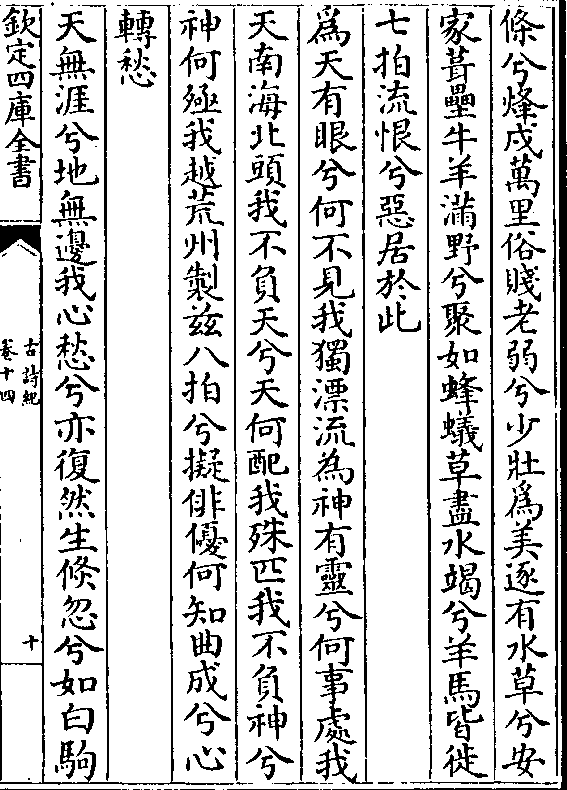 條兮烽戍萬里俗賤老弱兮少壯爲美逐有水草兮安
家葺壘牛羊滿野兮聚如蜂蟻草盡水竭兮羊馬皆徙
七拍流恨兮惡居於此
爲天有眼兮何不見我獨漂流為神有靈兮何事處我
天南海北頭我不負天兮天何配我殊匹我不負神兮
神何殛我越荒州製兹八拍兮擬俳優何知曲成兮心
轉愁
天無涯兮地無邊我心愁兮亦復然生倏忽兮如白駒
欽定四庫全書
古詩紀
卷十四
十